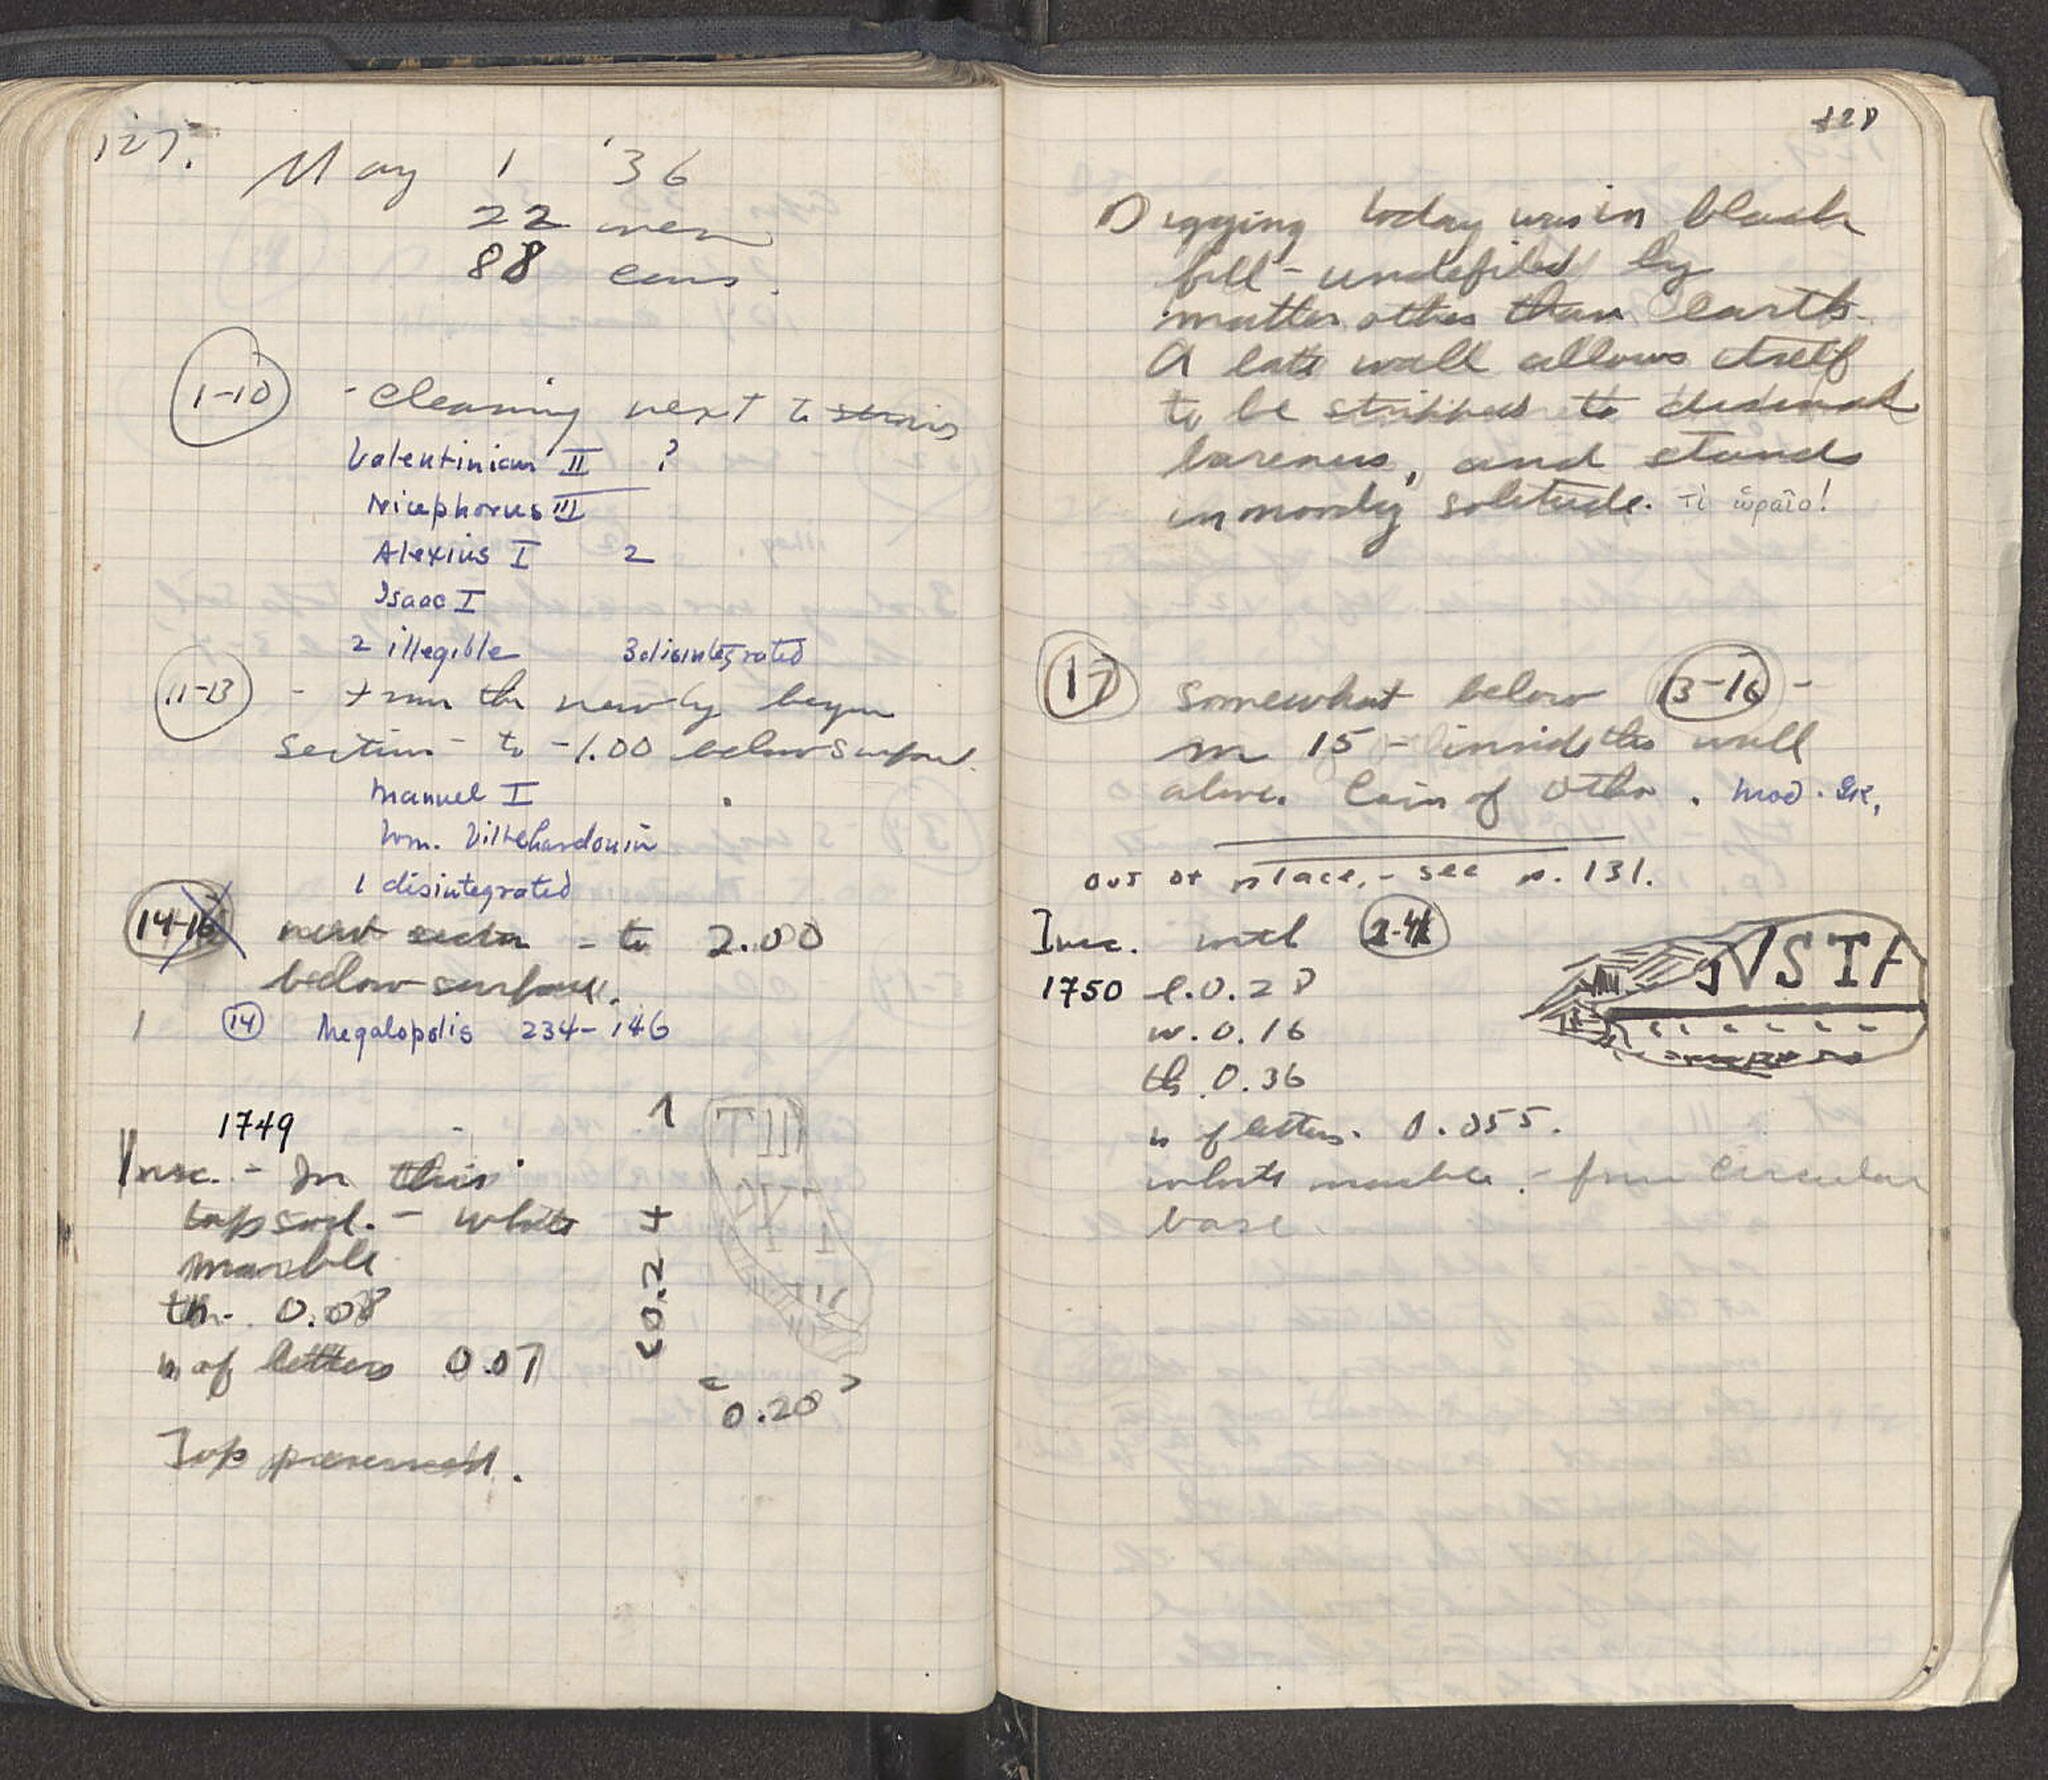 127.
May 1 '36
22 men
88 cans.
1-10 - cleaning next to stairs
Valentinian II ?
Nicephorus III
Alexius I 2
Isaac I
2 illegible 3 disintegrated
11-13 - from the newly begun
section - to -1.00 below surface.
Manuel I
Wm. Villehardouin
1 disintegrated
14-16 next section - to 2.00
below surface.
1 14 Megalopolis 234-146
1749
Insc. - In this
top soil. - white
marble
th. 0.08
h of letters 0.07
0.20
Top preserved.
128
Digging today was in black
fill - undefiled by
matter other than earth.
A late wall allows itself
to be stripped to
bareness, and stands
in moody solitude. τί ὡραῖο!
17 somewhat below 13-16 -
m 15 - inside the wall
above. Coin of Otho. Mod. GK.
out of place, - see p. 131.
Insc. with 2-4
1750 l. 0.28
w. 0.16
th. 0.36
h of letters. 0.055.
white marble. - from circular
base.
VSTA